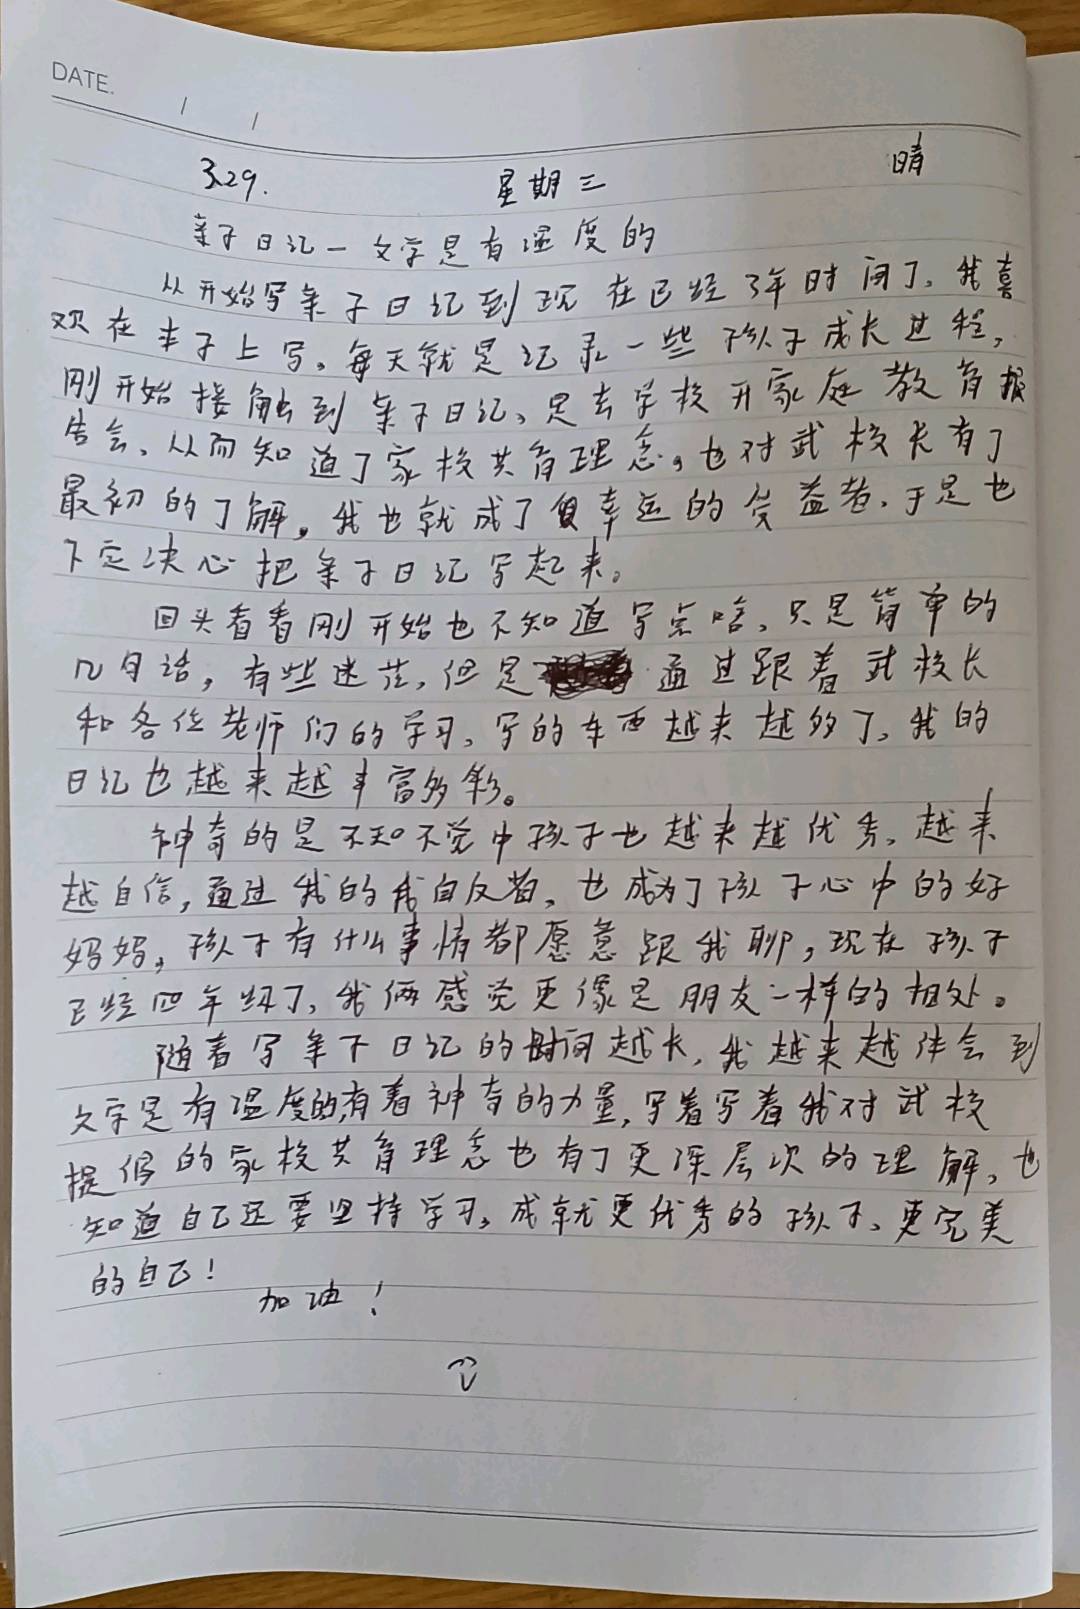 DATE. / /
3.29. 星期三 晴
亲子日记一文字是有温度的
从开始写亲子日记到现在已经3年时间了、我喜
欢在本子上写。每天就是记录一些孩子成长过程,
刚开始接触到亲子日记、是去学校开家庭教育报
告会、从而知道了家校共育理念。也对武校长有了
最初的了解。我也就成了最幸运的受益者、于是也
下定决心把亲子日记写起来。
回头看看刚开始也不知道写点啥、只是简单的
几句话,有些迷茫,但是通过跟着武校长
和各位老师们的学习、写的东西越来越多了、我的
日记也越来越丰富多彩。
神奇的是不知不觉中孩子也越来越优秀、越来
越自信,通过我的自我反省,也成为了孩子心中的好
妈妈,孩子有什么事情都愿意跟我聊,现在孩子
已经四年级了、我俩感觉更像是朋友一样的相处。
随着写亲子日记的时间越长、我越来越体会到
文字是有温度的,有着神奇的力量,写着写着我对武校
提倡的家校共育理念也有了更深层次的理解、也
知道自己还要坚持学习。成就更优秀的孩子、更完美
的自己!
加油!